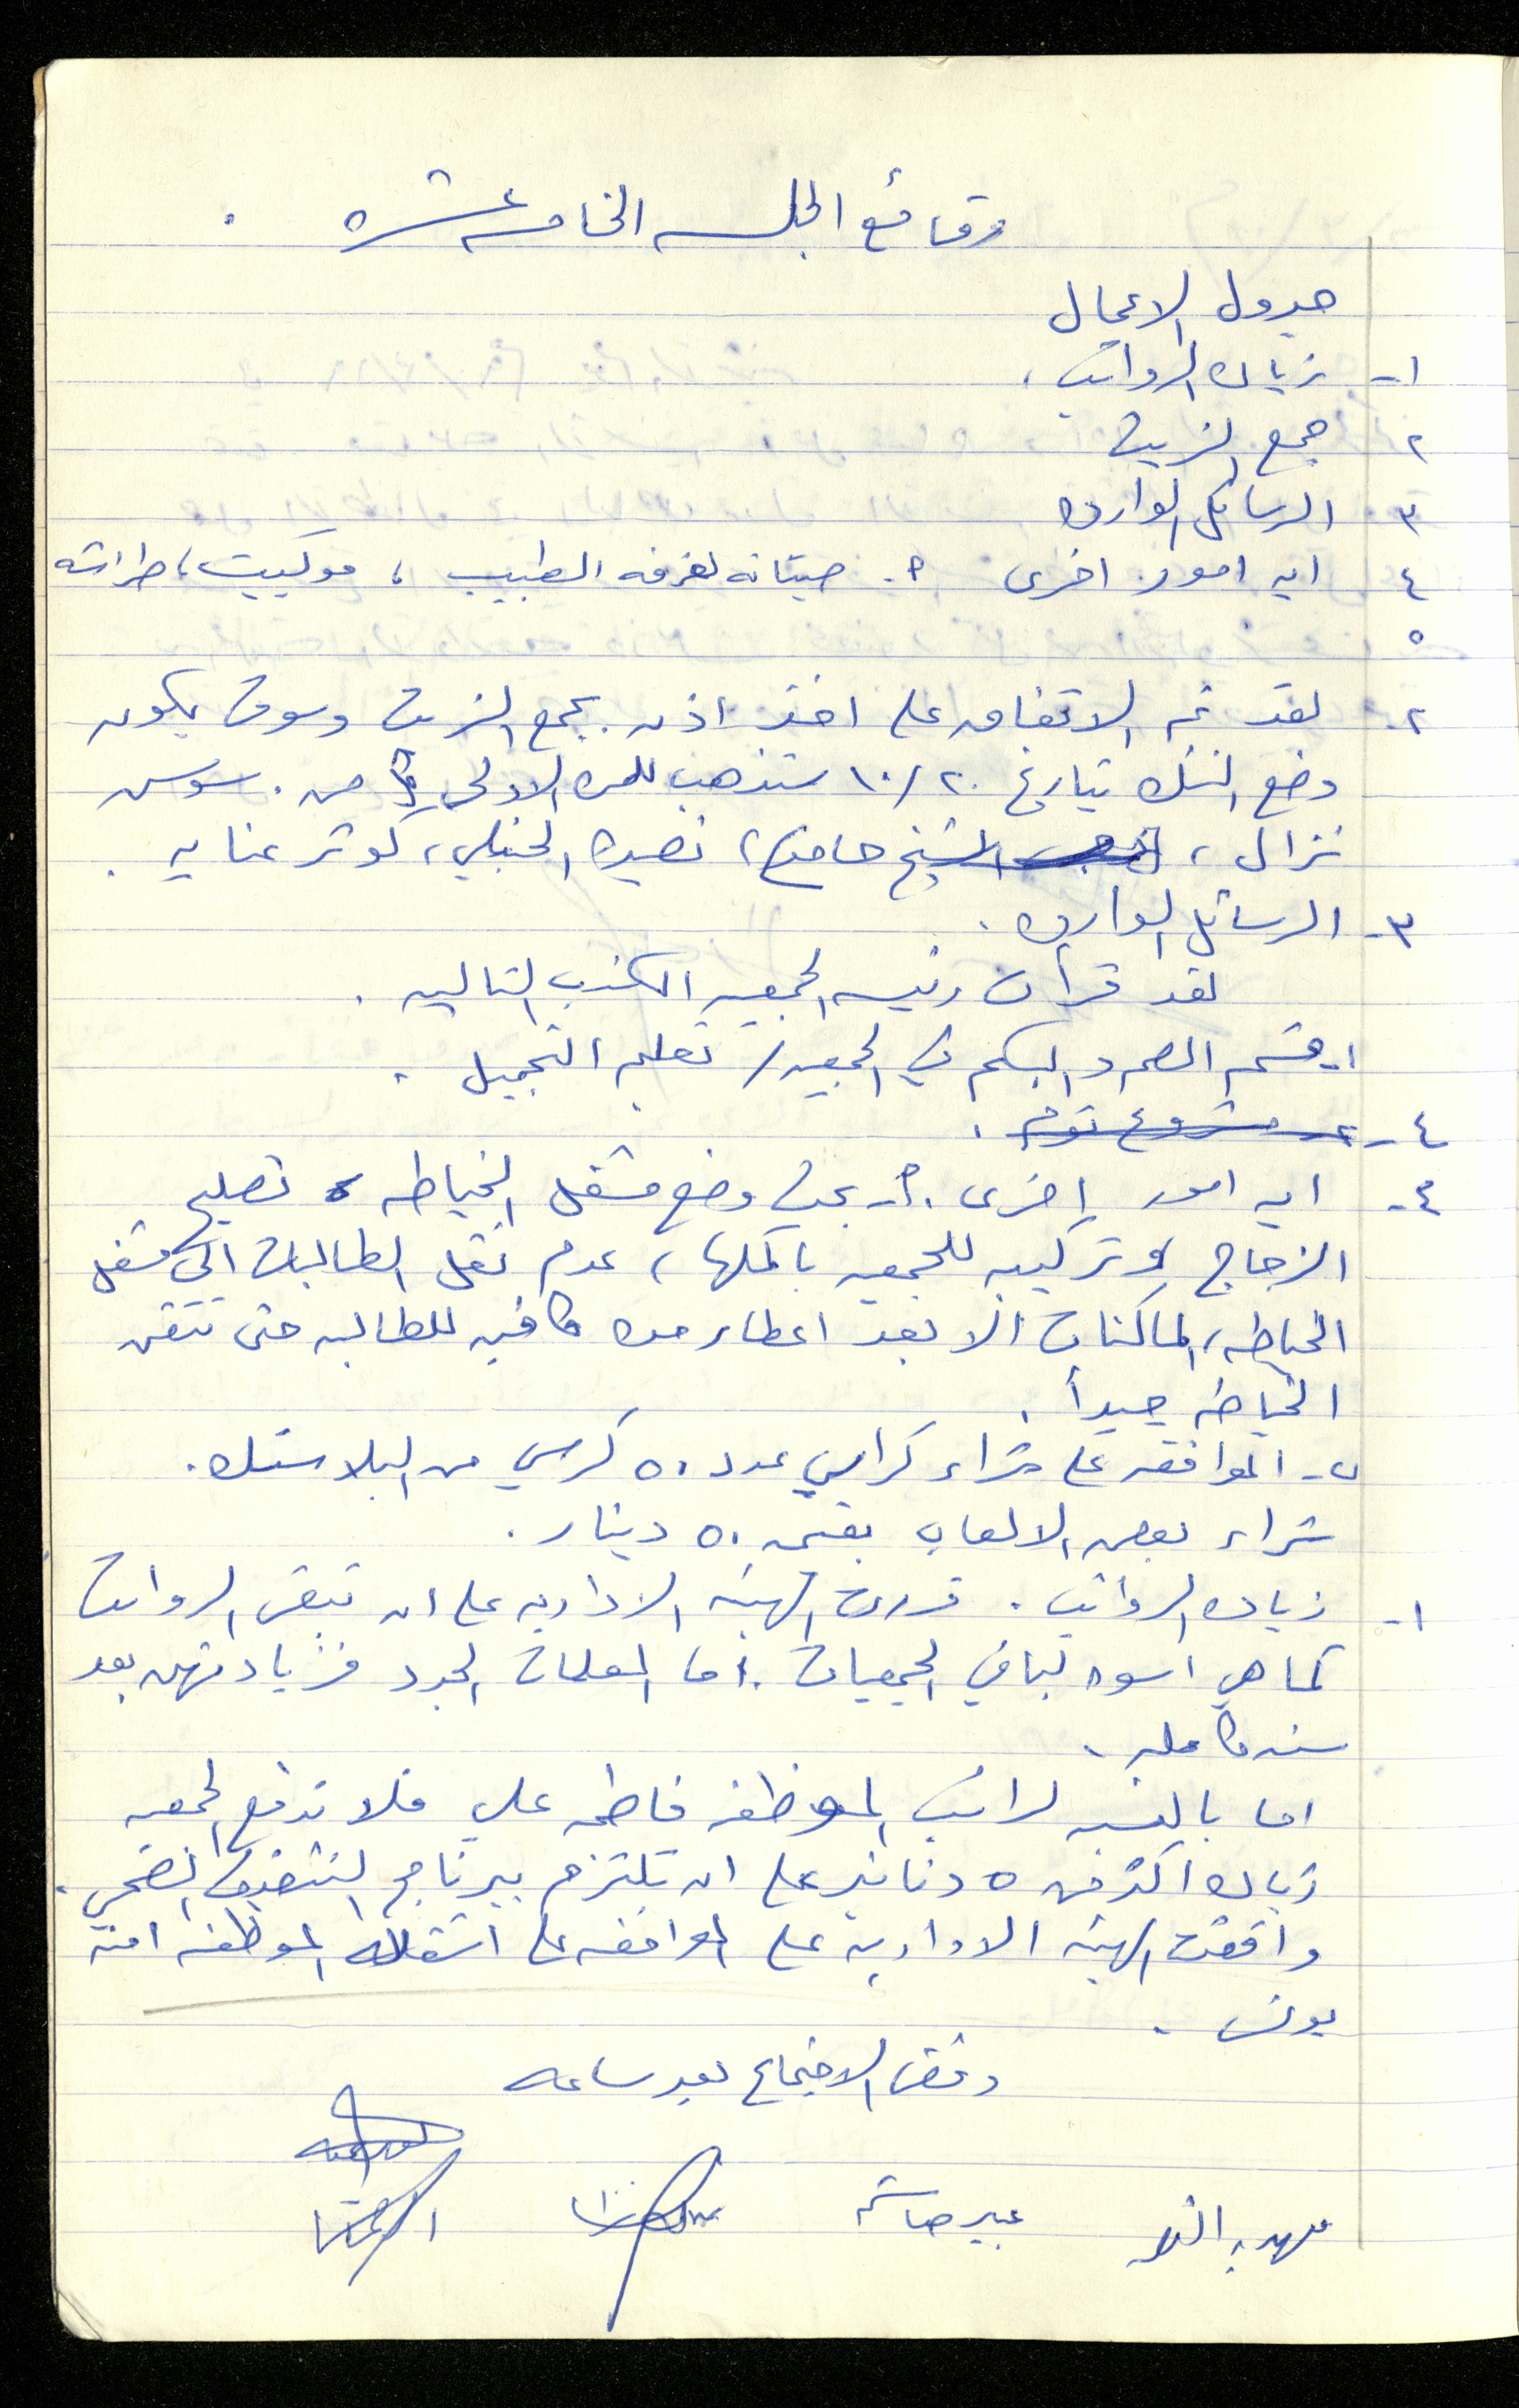 وقائع الجلسه الخامسه عشره .
جدول الاعمال
١- زياده الرواتب .
٢ جمع الزيت
٣ الرسائل الوارده
٤ ايه امور اخرى ٩. صيانه لغرفه الطبيب ، موكيت ، طراشه
٥
٢- لقد تم الاتفاق على اخذ اذن بجمع الزيت وسوف يكون
وضع التنك بتاريخ ١٠/٢٠ ستذهب للمره الاولى كل من . سوسن
نزال ، الشيخ حامد ، نصيره الحنبلي ، كوثر عنايه .
٣- الرسائل الوارده .
لقد قرأت رئيسه الجمعيه الكتب التاليه .
١- قسم الصم والبكم في الجمعيه / تعليم التجميل .
٤- مشروع توم .
٤- ايه امور اخرى . ٩- بحث وضع مشغل الخياطه و تصليح
الزجاج وتركيبه للجمعيه بأكملها ، عدم نقل الطالبات الى مشغل
الخياطه ، الماكنات الا بعد اعطاء مده كافيه للطالبه حتى تتقن
الخياطه جيداً .
ب- الموافقه على شراء كراسي عدد ٥٠ كرسي من البلاستك .
شراء بعض الالعاب بقيمه ٥٠ دينار .
١- زياده الرواتب . قررت الهيئه الاداريه على ان تبقى الرواتب
كما هي اسوه لباقي الجمعيات . اما المعلمات الجدد فزيادتهن بعد
سنه كامله .
اما بالنسبه لراتب الموظفه فاطمه علي فلا تدفع الجمعيه
زياده اكثر من ٥ دنانير على ان تلتزم ببرنامج التثقيف الصحي .
وافقت الهيئه الاداريه على الموافقه على استقاله الموظفه امنه
يونس .
وفض الاجتماع بعد ساعه
عبير هاشم